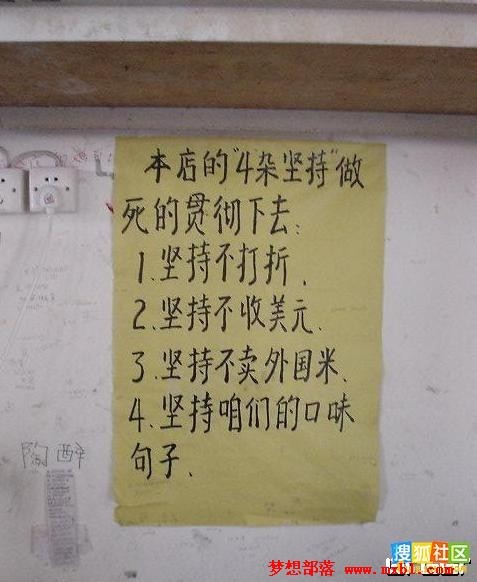 本店的"4杂坚持"做
死的贯彻下去:
1.坚持不打折.
2.坚持不收美元.
3.坚持不卖外国米.
4.坚持咱们的口味
句子.
陶醉
搜狐社区
梦想部落 www.mxbl.com